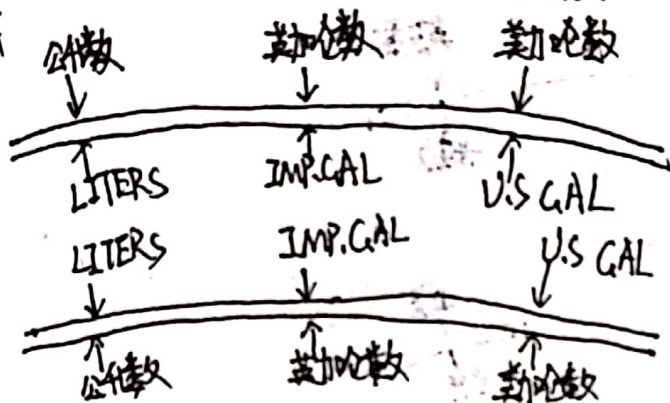 公升数 英加仑数 美加仑数
LITERS IMP.GAL U.S GAL
LITERS IMP.GAL U.S GAL
公升数 英加仑数 美加仑数